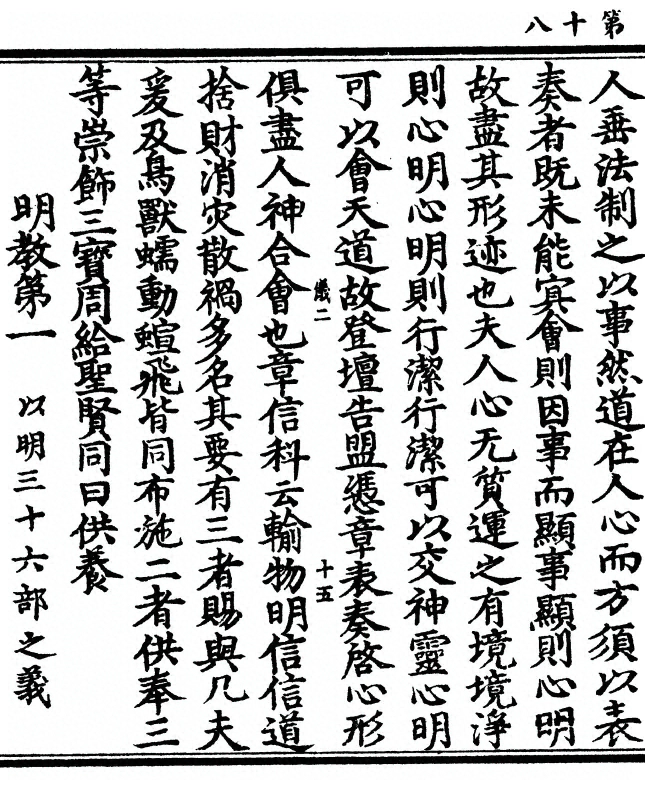 第十八
人垂法制之以事然道在人心而方須以表
奏者既未能㝠會則因事而顯事顯則心明
故盡其形迹也夫人心无質運之有境境淨
則心明心明則行潔行潔可以交神靈心明
可以會天道故登壇告盟憑章表奏啓心形
儀二
十五
俱盡人神合會也章信科云輸物明信信道
捨財消灾散禍多名其要有三者賜與凡夫
爰及鳥獸蠕動蝖飛皆同布施二者供奉三
等崇飾三寶周給聖賢同曰供養
明教第一 以明三十六部之義